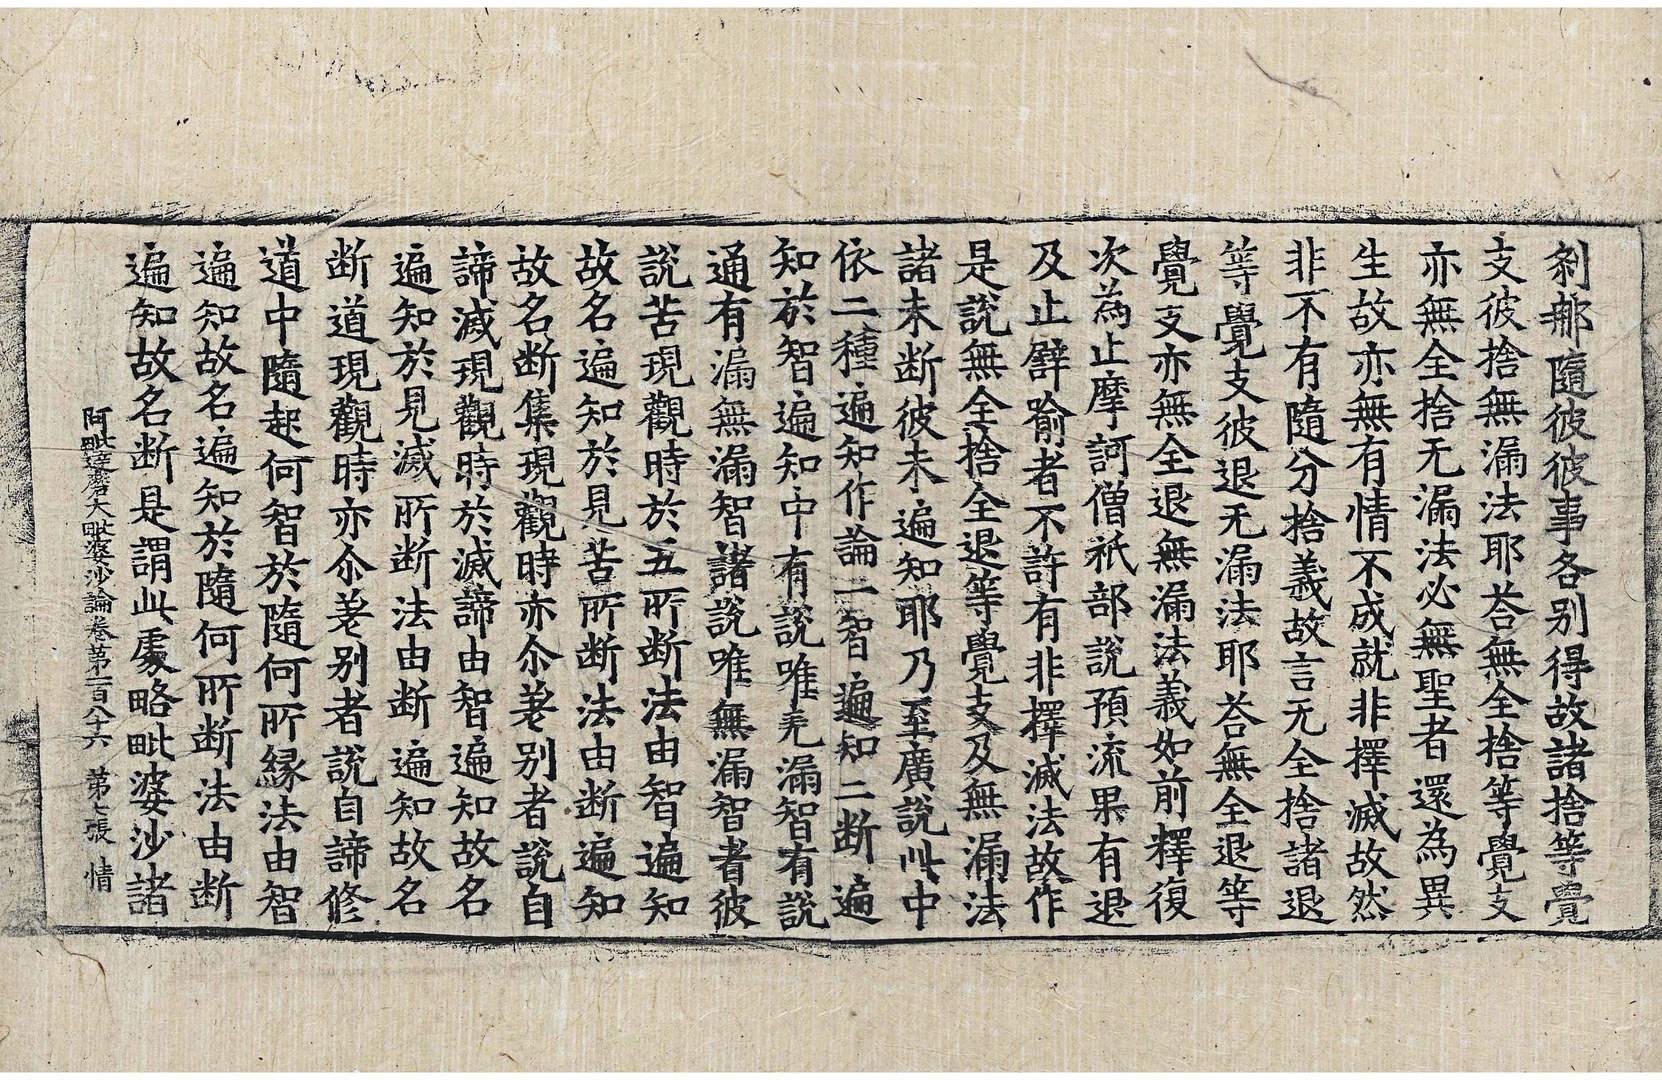 刹那隨彼彼事各別得故諸捨等覺
支彼捨無漏法耶荅無全捨等覺支
亦無全捨无漏法必無聖者還為異
生故亦無有情不成就非擇滅故然
非不有隨分捨義故言无全捨諸退
等覺支彼退无漏法耶荅無全退等
覺支亦無全退無漏法義如前釋復
次為止摩訶僧祇部說預流果有退
及止譬喻者不許有非擇滅法故作
是說無全捨全退等覺支及無漏法
諸未断彼未遍知耶乃至廣說此中
依二種遍知作論一智遍知二断遍
知於智遍知中有說唯无漏智有說
通有漏無漏智諸說唯無漏智者彼
說苦現觀時於五所断法由智遍知
故名遍知於見苦所断法由断遍知
故名断集現觀時亦尒差别者說自
諦滅現觀時於滅諦由智遍知故名
遍知於見滅所断法由断遍知故名
断道現觀時亦尒差别者說自諦修
道中隨起何智於隨何所緣法由智
遍知故名遍知於隨何所断法由断
遍知故名断是謂此處略毗婆沙諸
阿毗達磨大毗婆沙論卷第一百八十六 第七張 情